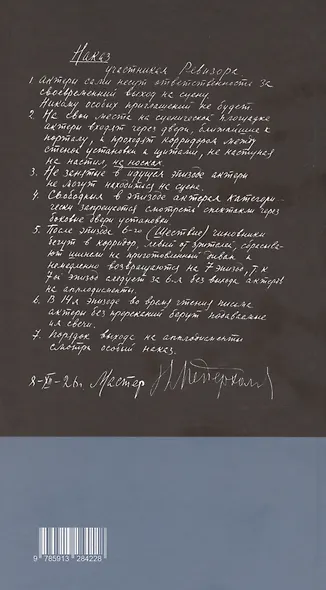 Наказ
участникам Ревизора
1. Актеры сами несут ответственность за
своевременный выход на сцену.
Никому особых приглашений не будет.
2. На свои места на сценической площадке
актеры входят через двери, ближайшие к
порталу, и проходят корридором между
стеной установки и щитами, не наступая
на настил, на носках.
3. Не занятые в идущем эпизоде актеры
не могут находиться на сцене.
4. Свободным в эпизоде актерам категори-
чески запрещается смотреть спектакль через
боковые двери установки.
5. После эпизода 6-го (Шествие) чиновники
бегут в корридор, левый от зрителей, сбрасыва-
ют шинели на приготовленный диван и
немедленно возвращаются на 7 эпизод, т.к
7й эпизод следует за 6м без выхода актеров
на апплодисменты.
6. В 14м эпизоде во время чтения письма
актеры без пререканий берут подаваемые
им свечи.
7. Порядок выхода на апплодисменты
смотри особый наказ.
8-XII-26г. Мастер В Мейерхольд
9 785913 284228